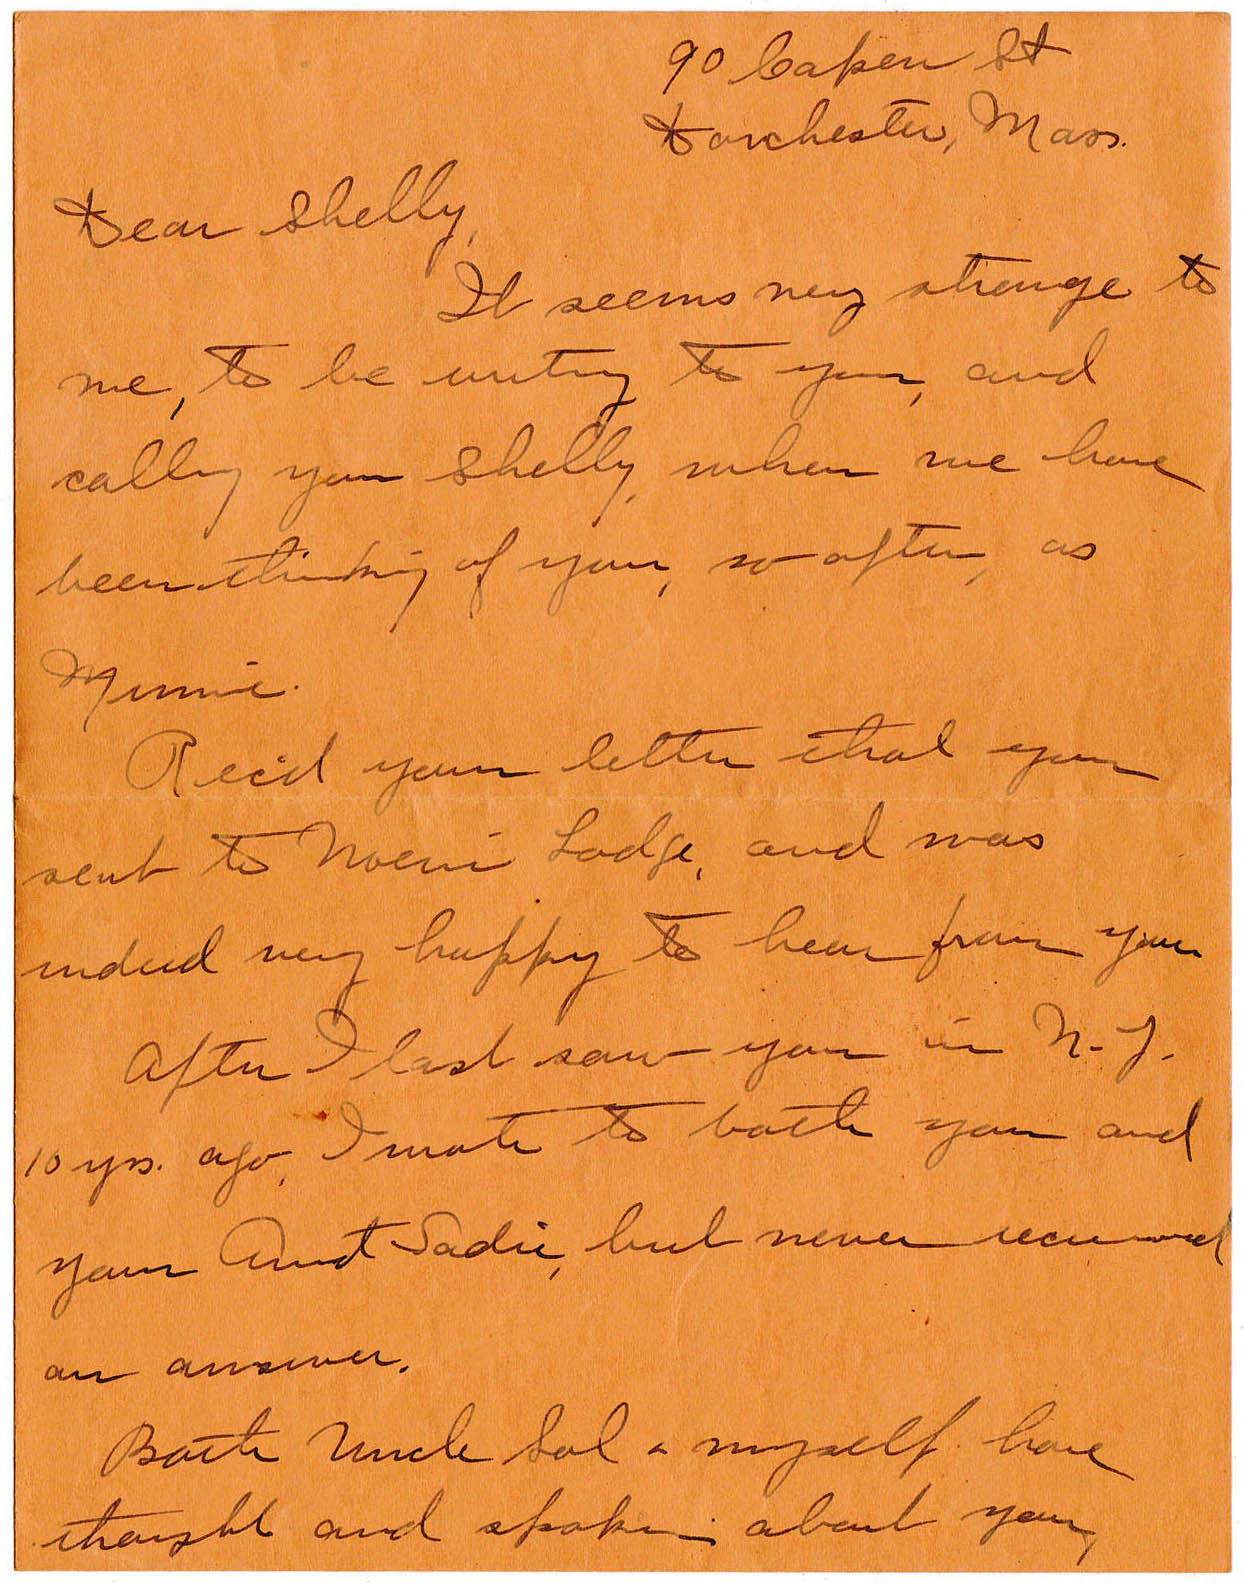 90 Capen St
Dorchester, Mass.
Dear Shelly,
It seems very strange to
me, to be writing to you, and
calling you Shelly, when we have
been thinking of you, so often, as
Minnie.
Rec'd your letter that you
sent to Noemi Lodge, and was
indeed very happy to hear from you
After I last saw you in N.Y.
10 yrs. ago, I wrote to both you and
your Aunt Sadie, but never received
an answer.
Both Uncle Sol & myself have
thought and spoken about you,